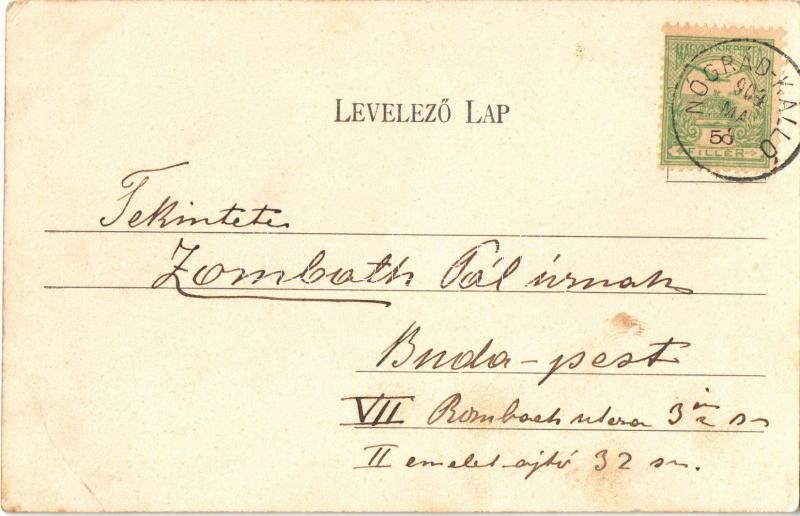 LEVELEZŐ LAP
MAGYAR KIR. POSTA
NÓGRÁD-KÁLLÓ
904
MA
5
FILLÉR
Tekintetes
Zombath Pál úrnak
Buda-pest
VII Rombach utcza 3
II emelet ajtó 32 sz.